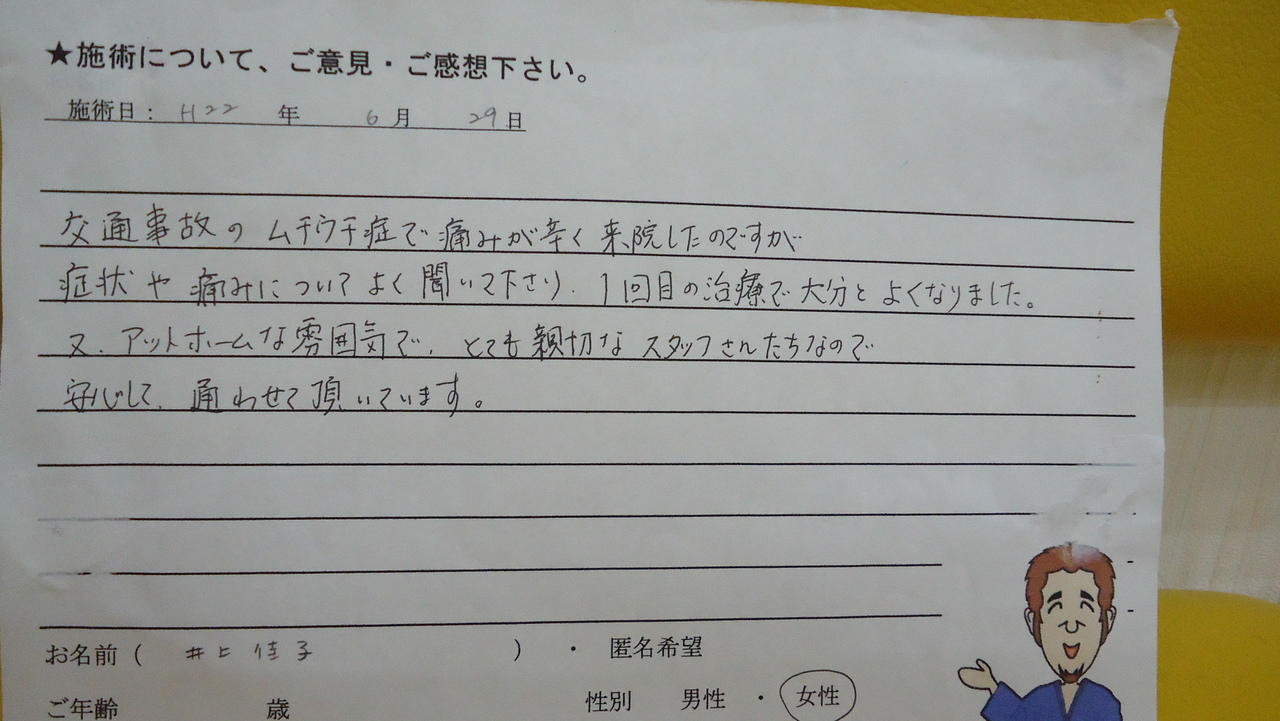 ★施術について、ご意見・ご感想下さい。
施術日： H22 年 6 月 29 日
交通事故の ムチウチ症で 痛みが辛く 来院したのですが
症状や 痛みについて よく 聞いて下さり、1回目の治療で 大分と よくなりました。
又、アットホームな雰囲気で、とても親切な スタッフさんたちなので
安心して、通わせて頂いています。
お名前（ 井上 佳子 ）・ 匿名希望
ご年齢 歳 性別 男性 ・ 女性